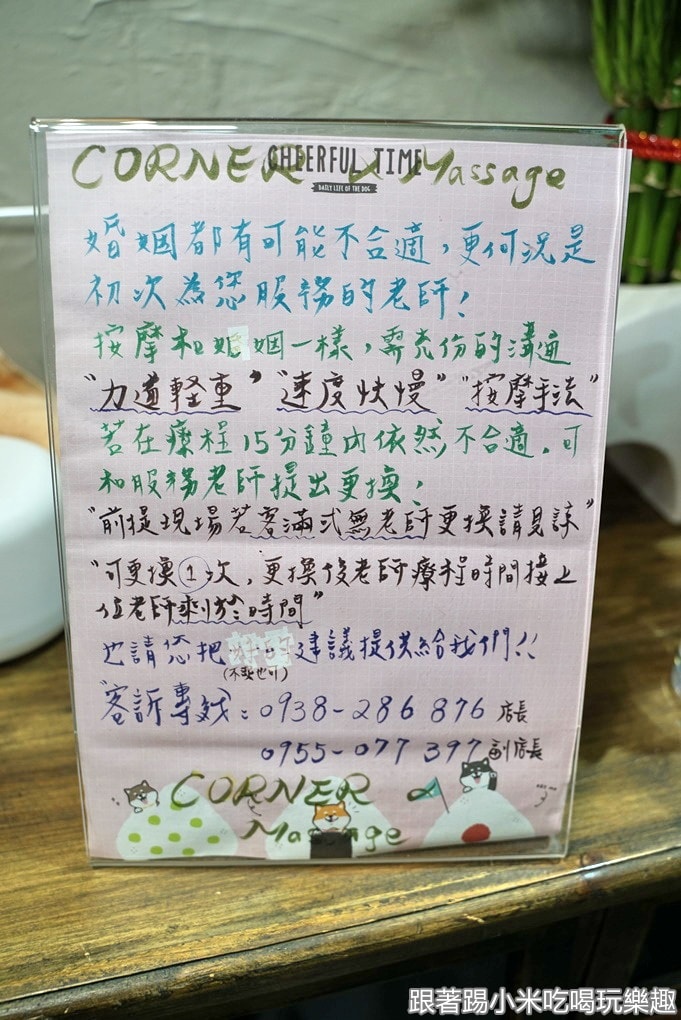 CHEERFUL TIME
CORNER & Massage
DAILY LIFE OF THE DOG
婚姻都有可能不合適，更何況是
初次為您服務的老師！
按摩和婚姻一樣，需充份的溝通
"力道軽重" "速度快慢" "按摩手法"
若在療程15分鐘內依然不合適，可
和服務老師提出更換！
"前提現場若客滿或無老師更換請見諒"
"可更換①次，更換後老師療程時間接上
位老師剩於時間"
也請您把 建議提供給我們！！
(不認也可)
"客訴專線：0938-286 876 店長
0955-077 397 副店長
CORNER &
Massage
跟著踢小米吃喝玩樂趣